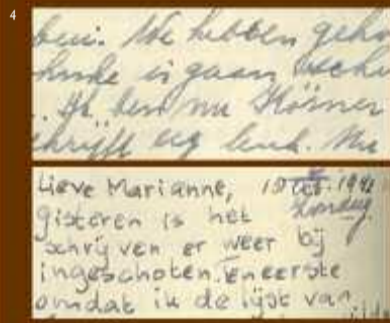 4
ben. We hebben geho
is gaan
Ik ben nu Körner
schrijft erg leuk. Nu
Lieve Marianne, 18 Oct. 1942
gisteren is het Zondag
schrijven er weer bij
ingeschoten. Ten eerste
omdat ik de lijst van